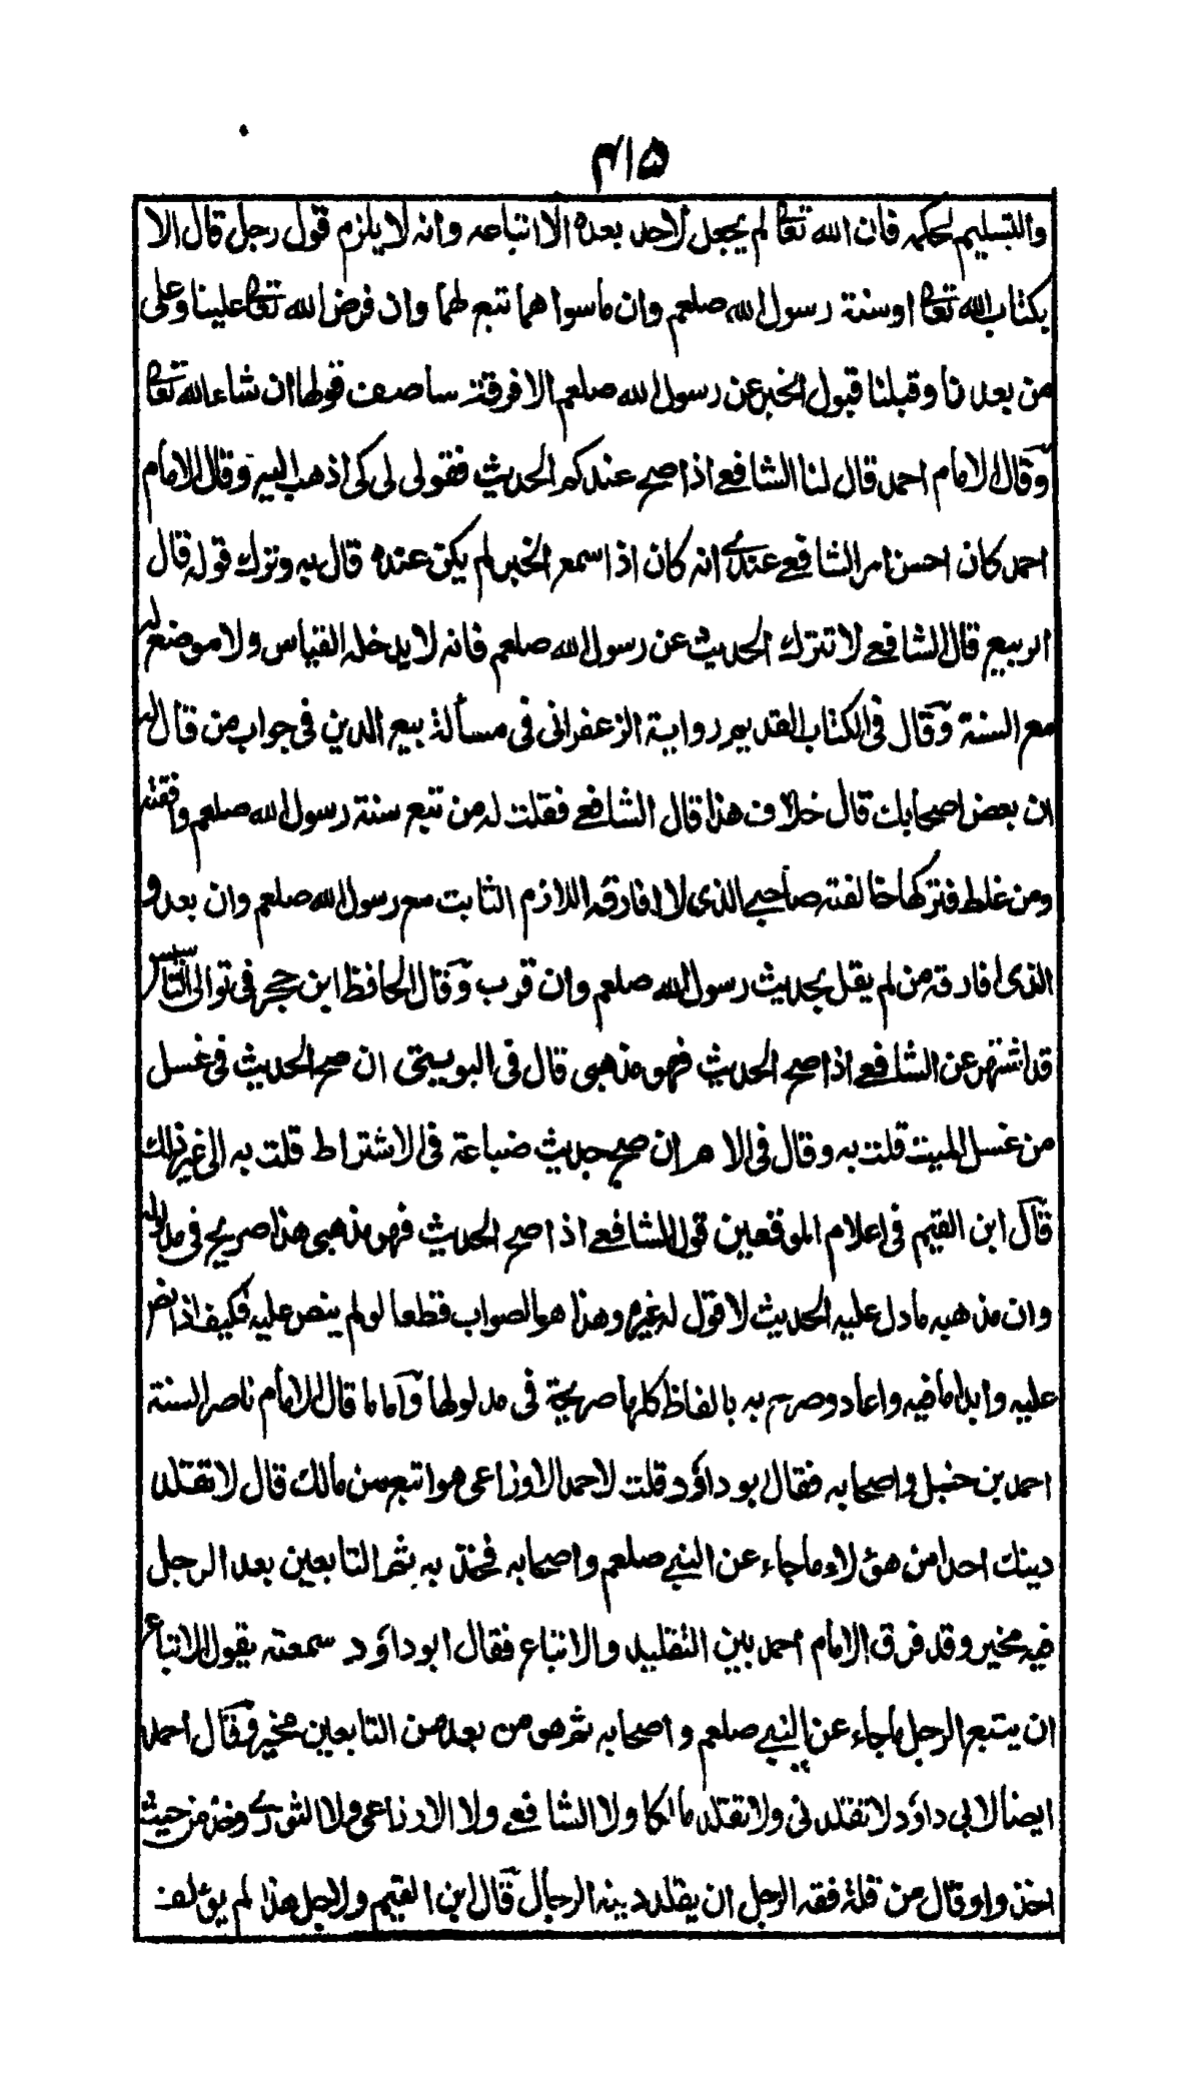 ۴۱۵
والتسليم لحكمه فان الله تعا لم يجعل لاحد بعده الا اتباعه وانه لا يلزم قول رجل قال الا
بكتاب الله تعا او سنة رسول الله صلعم وان ما سواهما تبع لهما وان فرض الله تعا علينا وعلى
من بعدنا وقبلنا قبول الخبر عن رسول الله صلعم الا فرقة ساصف قولها ان شاء الله تعا
وقال الامام احمد قال لنا الشافعے اذا صح عندكم الحديث فقولى لى كى اذهب اليه وقال الامام
احمد كان احسن امر الشافعے عندے انه كان اذا سمع الخبر لم يكن عنده قال به وترك قوله قال
الربيع قال الشافعے لا تترك الحديث عن رسول الله صلعم فانه لا يدخله القياس ولا موضع له
مع السنة وقال فى الكتاب القديم رواية الزعفرانى فى مسألة بيع الدين فى جواب من قال له
ان بعض اصحابك قال خلاف هذا قال الشافعے فقلت له من تبع سنة رسول الله صلعم وافقته
ومن غلط فتركها خالفته صاحبے الذى لا افارقه اللازم الثابت مع رسول الله صلعم وان بعد و
الذى افارقه من لم يقل بحديث رسول الله صلعم وان قرب وقال الحافظ ابن حجر فى توالى التاسيس
قد اشتهر عن الشافعے اذا صح الحديث فهو مذهبى قال فى البويطى ان صح الحديث فى غسل
من غسل الميت قلت به وقال فى الام ان صح حديث ضباعة فى الاشتراط قلت به الى غير ذلك
قال ابن القيم فى اعلام الموقعين قول الشافعے اذا صح الحديث فهو مذهبى هذا صريح فى مدلوله
وان مذهبه ما دل عليه الحديث لا قول له غيره وهذا هو الصواب قطعا لو لم ينص عليه فكيف اذا نص
عليه وابدا ما فيه واعاد وصرح به بالفاظ كلها صريحة فى مدلولها واما ما قال الامام ناصر السنة
احمد بن حنبل واصحابه فقال ابو داؤد قلت لاحمد الاوزاعى هو اتبع من مالك قال لا تقلد
دينك احدا من هؤلاء ما جاء عن النبے صلعم واصحابه فخذ به ثم التابعين بعد الرجل
فيه مخير وقد فرق الامام احمد بين التقليد والاتباع فقال ابو داؤد سمعته يقول الاتباع
ان يتبع الرجل ما جاء عن النبے صلعم واصحابه ثم هو من بعد من التابعين مخير وقال احمد
ايضا لابى داؤد لا تقلدنى ولا تقلد مالكا ولا الشافعے ولا الاوزاعى ولا الثورے وخذ من حيث
اخذوا وقال من قلة فقه الرجل ان يقلد دينه الرجال قال ابن القيم ولاجل هذا لم يؤلف